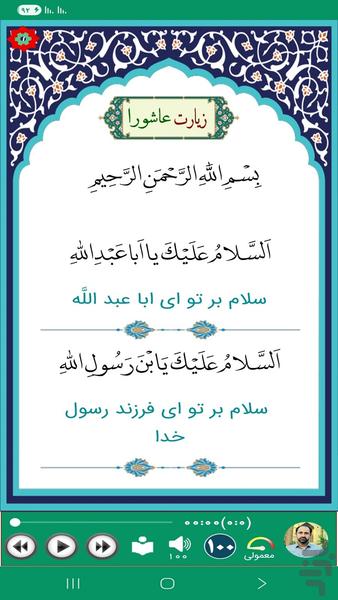 ۹۲
زیارت عاشورا
بِسْمِ اللهِ الرَّحْمَنِ الرَّحِيمِ
اَلسَّلامُ عَلَيْكَ يا اَبا عَبْدِاللهِ
سلام بر تو ای ابا عبد اللَّه
اَلسَّلامُ عَلَيْكَ يَا بْنَ رَسُولِ اللهِ
سلام بر تو ای فرزند رسول
خدا
۰۰:۰۰(۰:۰)
۱۰۰
۱۰۰
معمولی
بازار